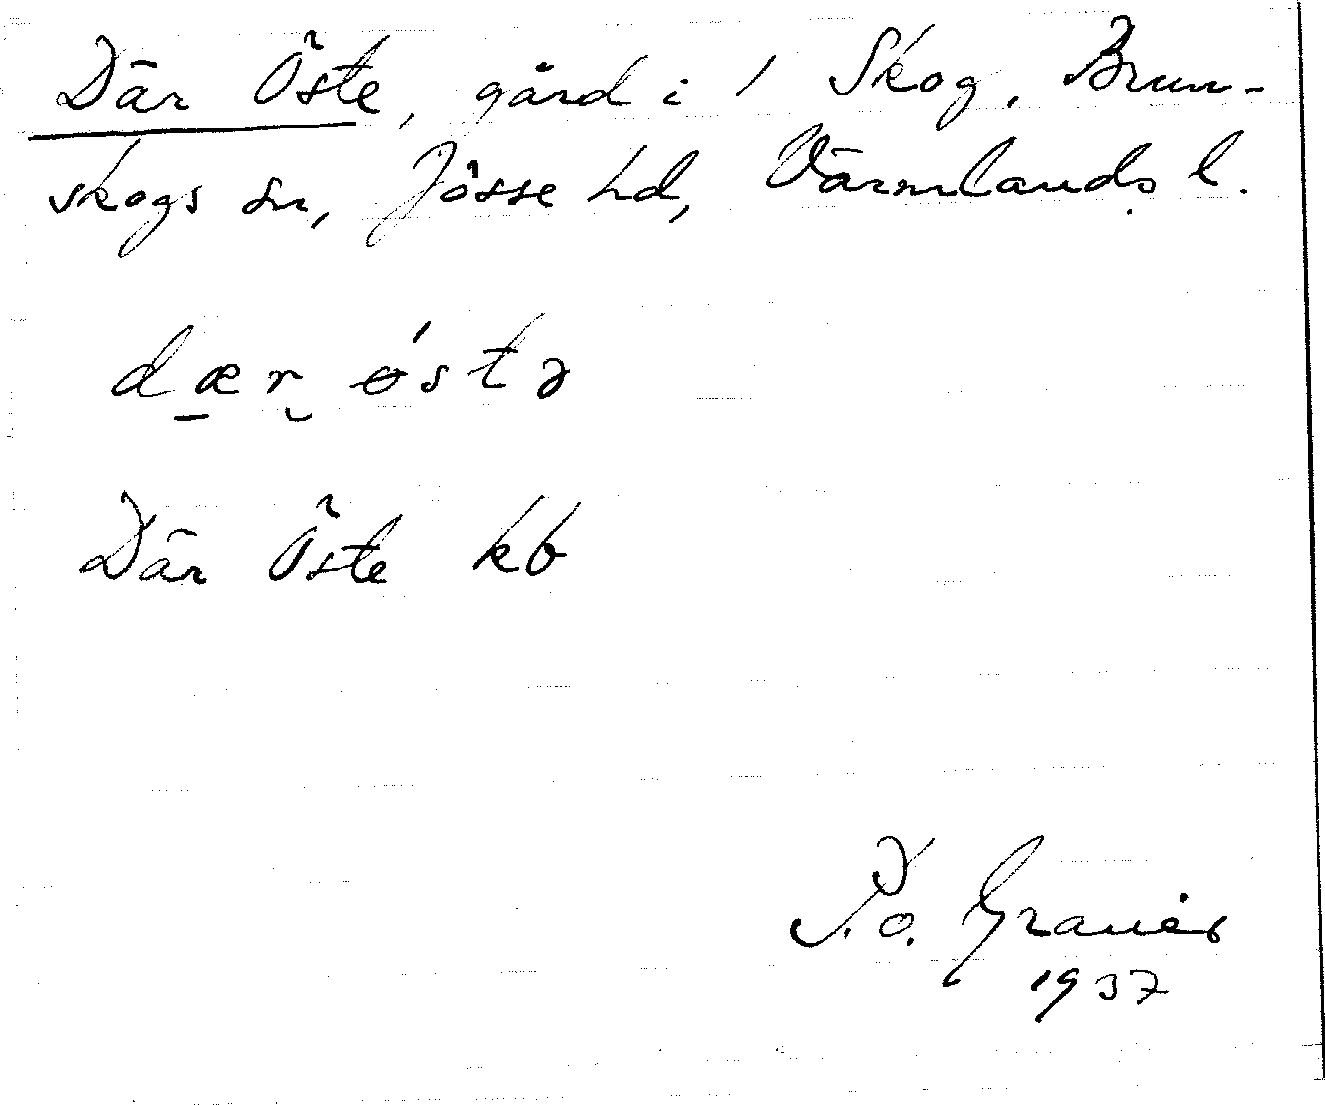 Där Öste, gård i 1 Skog, Brun-
skogs sn, Jösse hd, Värmlands l.
dær östə
Där Öste kb
P. O. Granér
1937